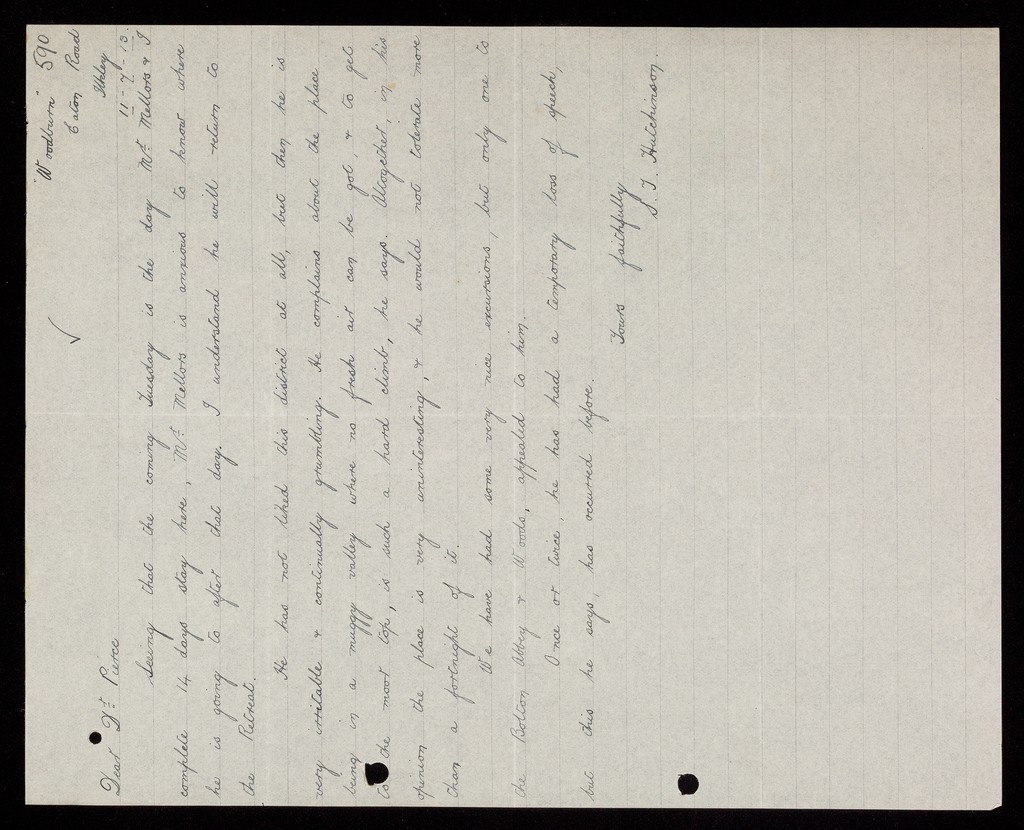 590
"Woodburn"
Eaton Road
Ilkley
11-7-13.
Dear Dr Pierce
Seeing that the coming Tuesday is the day Mr Mellors & I
complete 14 days stay here, Mr Mellors is anxious to know where
he is going to after that day. I understand he will return to
the Retreat.
He has not liked this district at all, but then he is
very irritable & continually grumbling. He complains about the place
being in a muggy valley where no fresh air can be got, & to get
to the moor top, is such a hard climb, he says. Altogether, in his
opinion the place is very uninteresting, & he would not tolerate more
than a fortnight of it.
We have had some very nice excursions, but only one to
the Bolton Abbey & Woods, appealed to him.
Once or twice, he has had a temporary loss of speech,
but this he says, has occurred before.
Yours faithfully
S. T. Hutchinson.